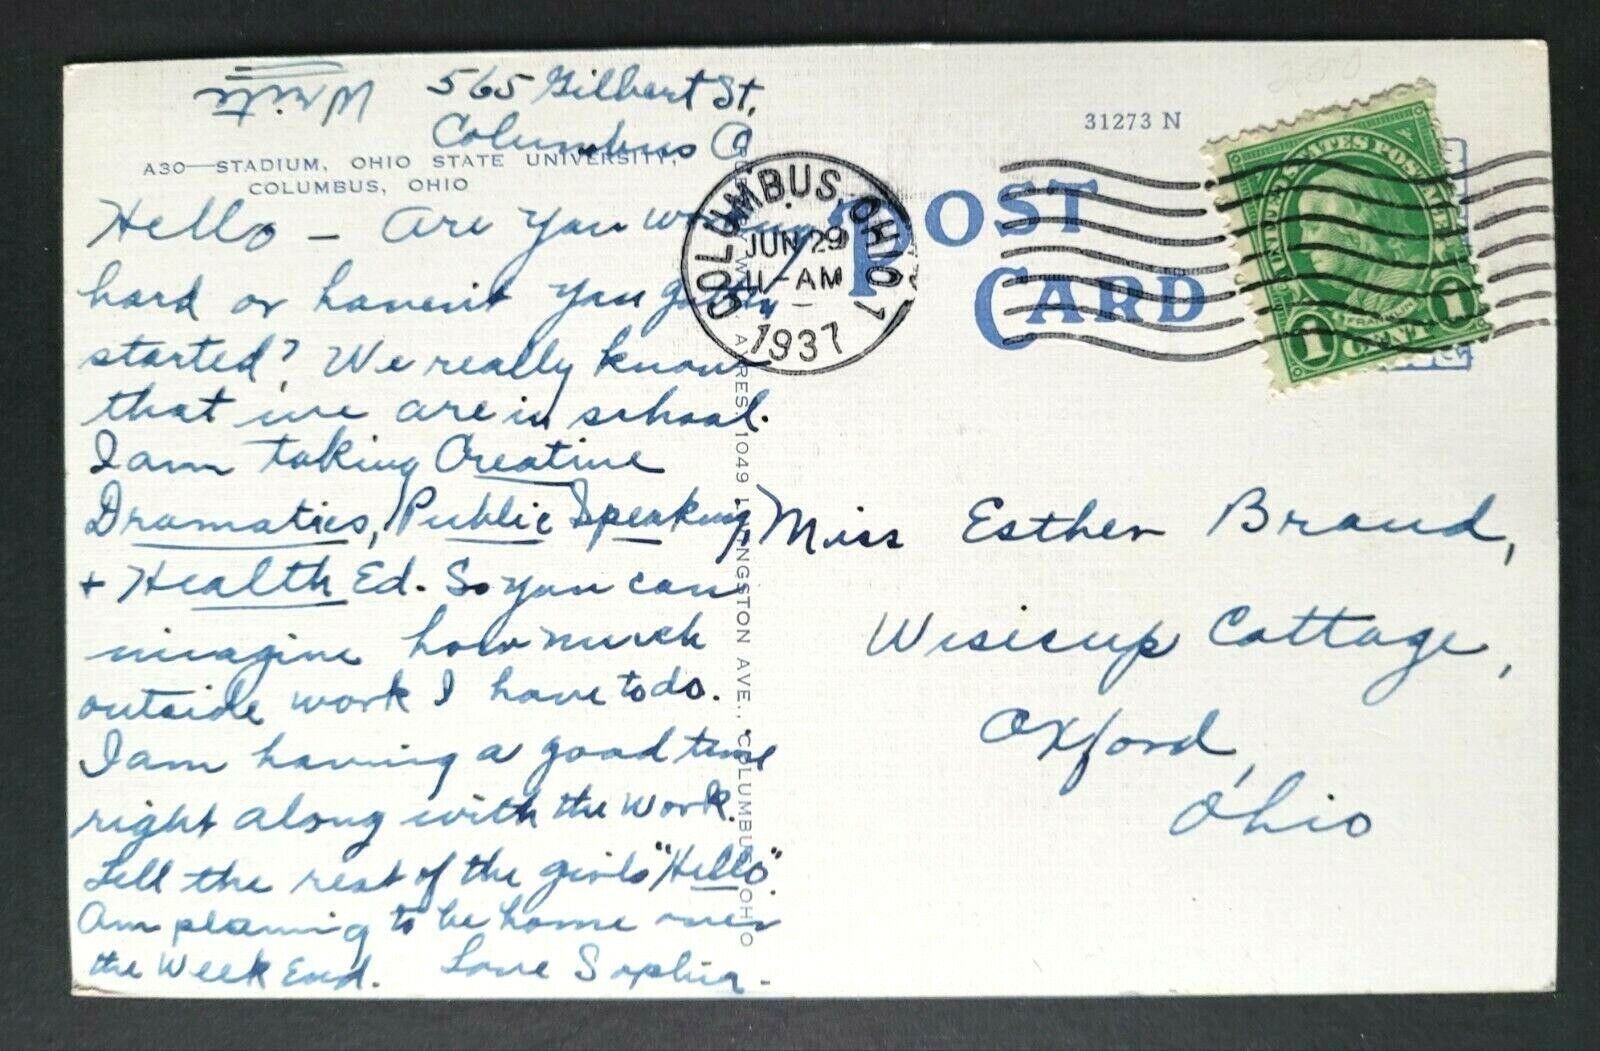 Write
565 Gilbert St.
Columbus O
A30—STADIUM, OHIO STATE UNIVERSITY,
COLUMBUS, OHIO
Hello – Are you working
hard or haven't you gotten
started? We really know
that we are in school.
I am taking Creative
Dramatics, Public Speaking,
+ Health Ed. So you can
imagine how much
outside work I have to do.
I am having a good time
right along with the work.
Tell the rest of the girls "Hello".
Am planning to be home over
the Week End. Love Sophia.
AYRES, 1049 LIVINGSTON AVE., COLUMBUS, OHIO
COLUMBUS, OHIO 1
JUN 29
11-AM
1937
31273 N
POST
CARD
UNITED STATES POSTAGE
FRANKLIN
1 CENT 1
Miss Esther Brand,
Wisecup Cottage,
Oxford,
Ohio